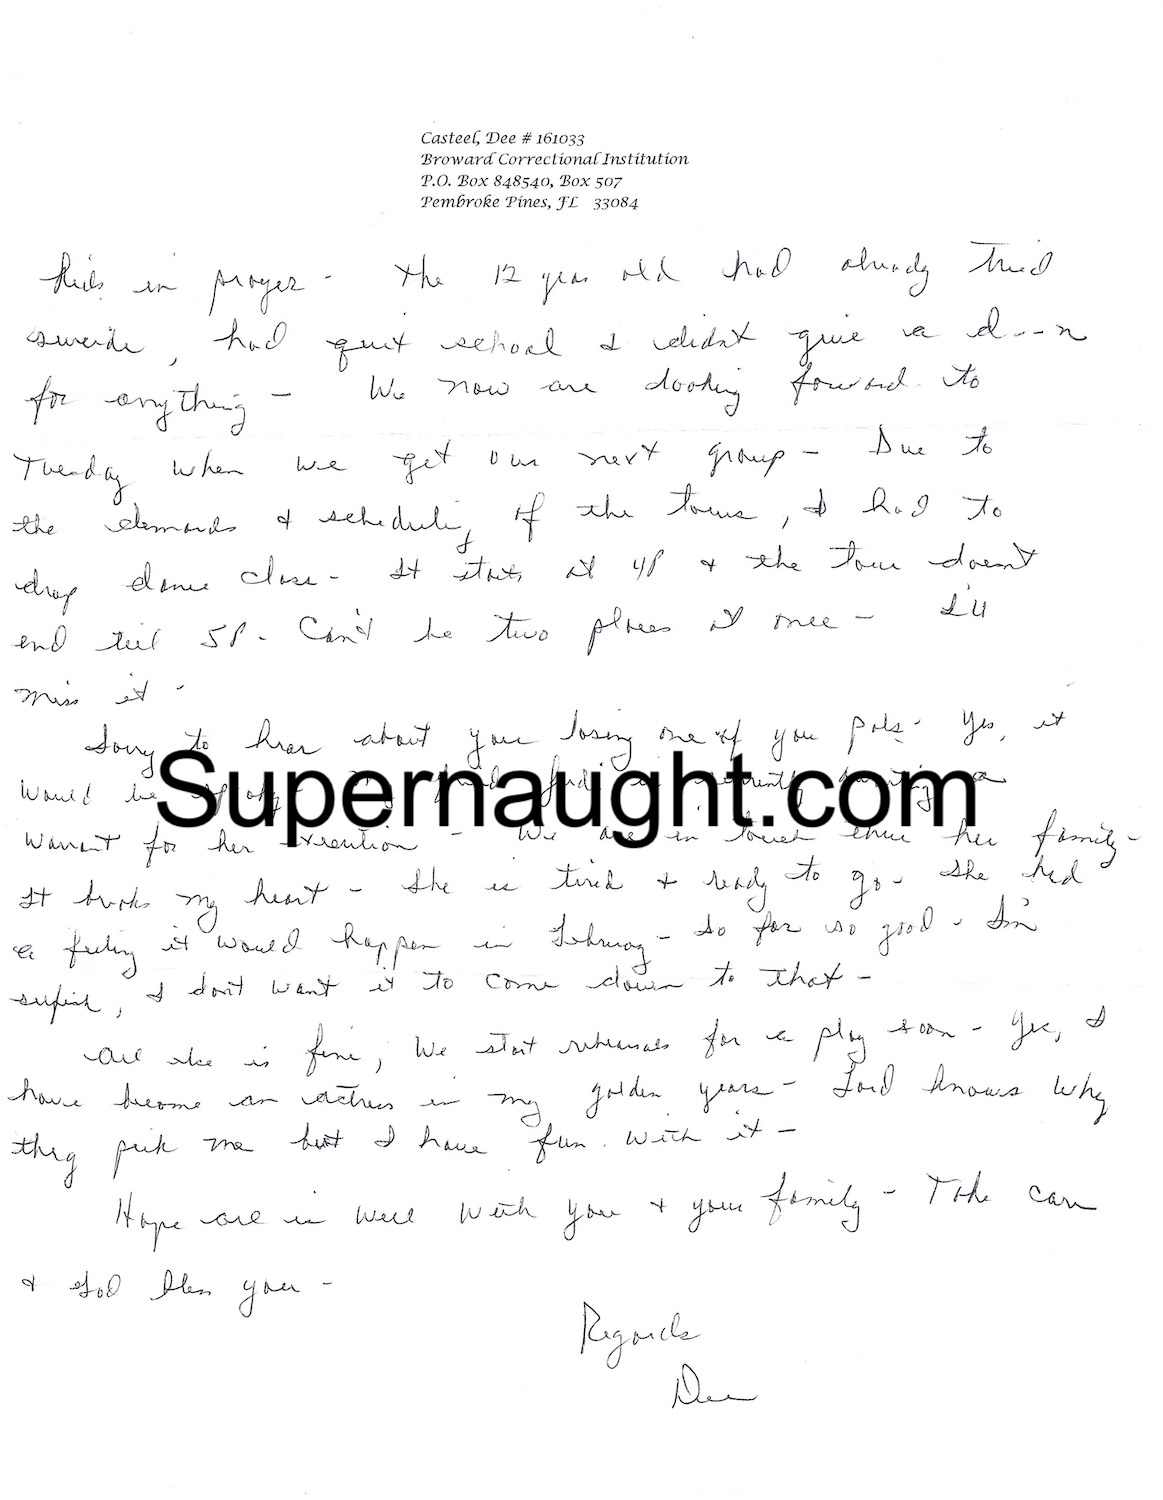 Casteel, Dee # 161033
Broward Correctional Institution
P.O. Box 848540, Box 507
Pembroke Pines, FL 33084
kids in prayer - The 12 year old had already tried
suicide, had quit school & didn't give a d--n
for anything - We now are looking forward to
Tuesday when we get our next group - Due to
the demands & scheduling of the tours, I had to
drop dance class - It starts at 4P & the tour doesn't
end till 5P - Can't be two places at once - I'll
miss it -
Sorry to hear about you losing one of your pals - Yes, it
would be
Supernaught.com
a
warrant for her execution - We are in touch thru her family -
It breaks my heart - She is tired & ready to go - She had
a feeling it would happen in February - So far so good - I'm
selfish, I don't want it to come down to that -
All else is fine, We start rehearsals for a play soon - Yes, I
have become an actress in my golden years - Lord knows why
they pick me but I have fun with it -
Hope all is well with you & your family - Take care
& God bless you -
Regards
Dee